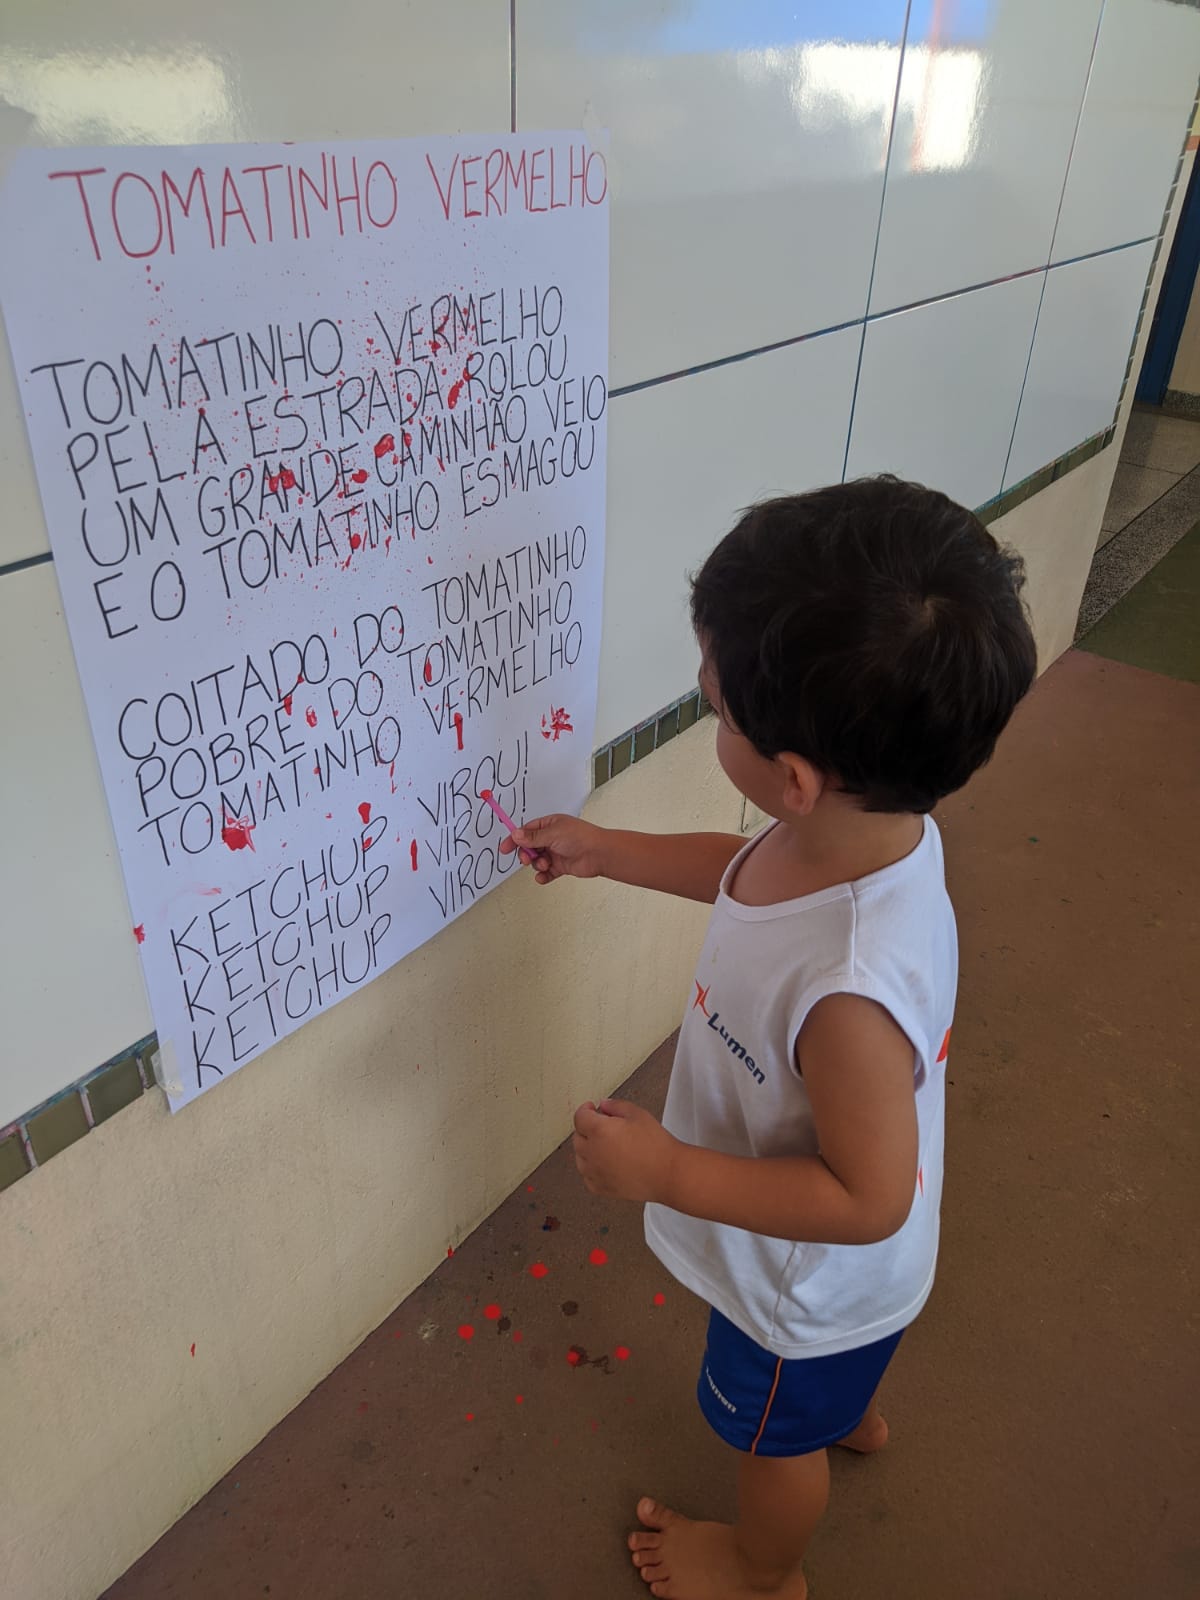 TOMATINHO VERMELHO
TOMATINHO VERMELHO
PELA ESTRADA ROLOU
UM GRANDE CAMINHÃO VEIO
E O TOMATINHO ESMAGOU
COITADO DO TOMATINHO
POBRE DO TOMATINHO
TOMATINHO VERMELHO
KETCHUP VIROU!
KETCHUP VIROU!
KETCHUP VIROU!
Lumen
Lumen